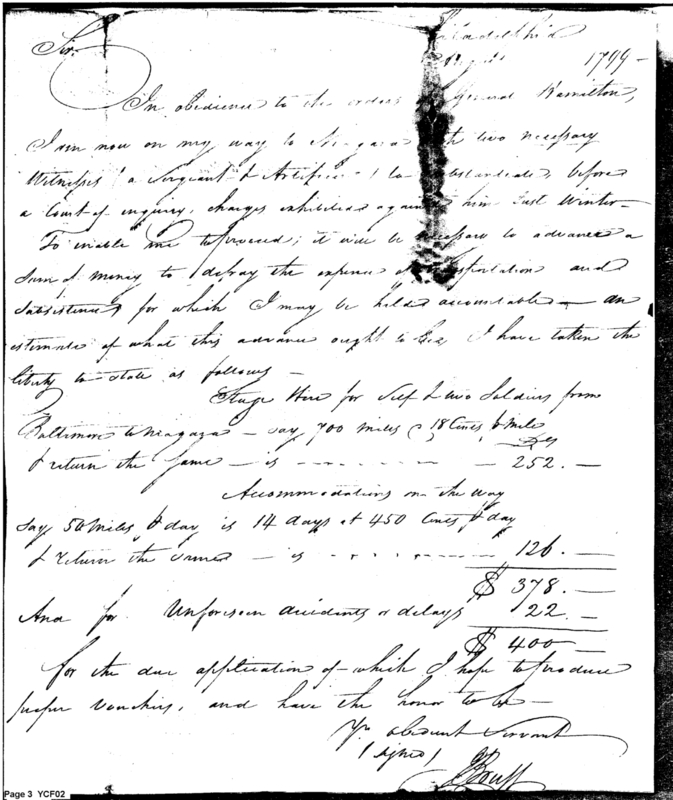 Sir,
Philadelphia
1799 -
In obedience to the orders of General Hamilton,
I am now on my way to Niagara with two necessary
Witnesses (a Sergeant & Artificer) to substantiate, before
a Court of inquiry, charges exhibited against him last Winter -
To enable me to proceed, it will be necessary to advance a
sum of money to defray the expense of transportation and
subsistence, for which I may be held accountable - an
estimate of what this advance ought to be, I have taken the
liberty to state as follows -
Stage Hire for Self & two Soldiers from
Baltimore to Niagara - say 700 miles @ 18 Cents ℔ Mile
Dols
& return the same - is - - - - - - - 252. -
Accommodations on the way
say 50 Miles ℔ day is 14 days at 450 Cents ℔ day
& return the same - is - - - - - - - 126. -
$ 378. -
And for Unforeseen accidents or delays 22. -
$ 400 -
for the due application of which I hope to produce
proper vouchers, and have the honor to be -
Yr obedient Servant
(signed)
Page 3 YCF02